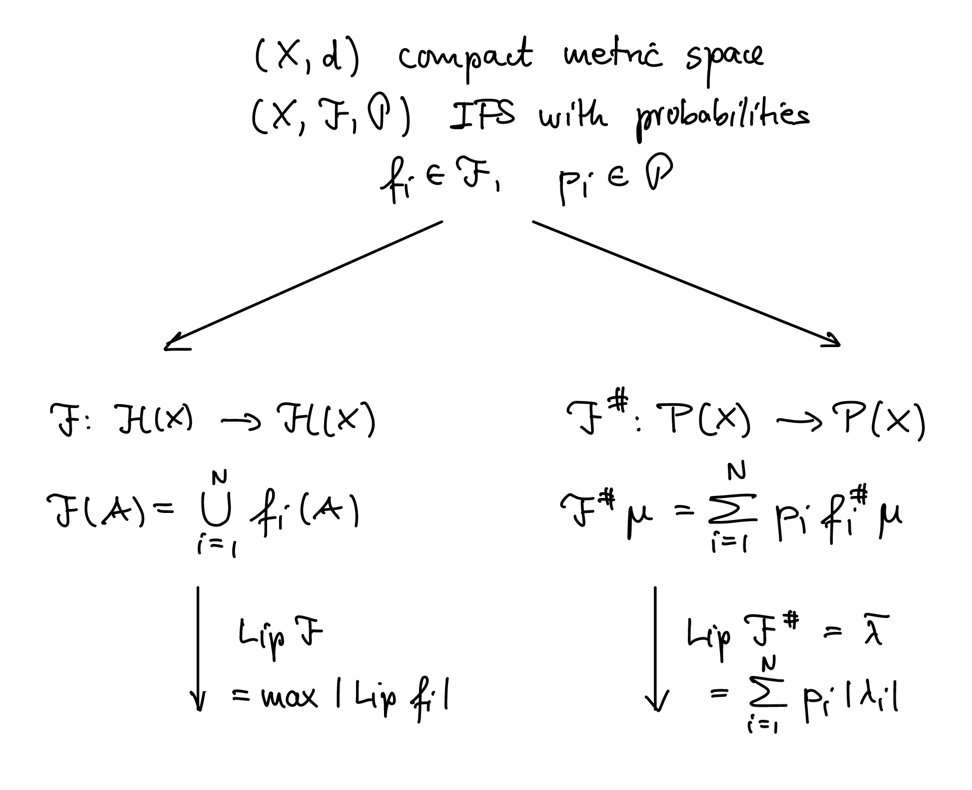 (X, d) compact metric space
(X, ℱ, 𝒫) IFS with probabilities
fᵢ ∈ ℱ, pᵢ ∈ 𝒫
ℱ: ℋ(X) → ℋ(X)
ℱ(A) = ⋃_{i=1}^{N} fᵢ(A)
Lip ℱ
= max |Lip fᵢ|
ℱ^#: P(X) → P(X)
ℱ^# μ = ∑_{i=1}^{N} pᵢ fᵢ^# μ
Lip ℱ^# = λ̄
= ∑_{i=1}^{N} pᵢ |λᵢ|